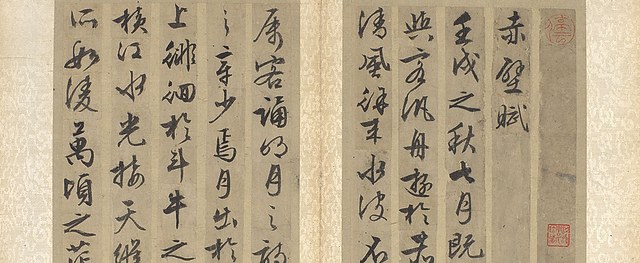 赤壁賦
壬戌之秋七月既
與客汎舟遊於赤
清風徐來水波不
属客誦明月之詩
之章少焉月出於
上徘徊於斗牛之
橫江水光接天縱
所如凌萬頃之茫